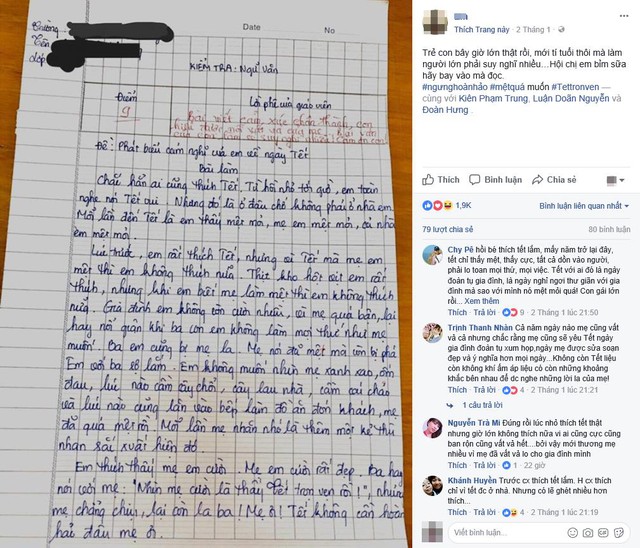 Date
No
Trường
Tên
Lớp
KIỂM TRA: Ngữ Văn
Điểm
Lời phê của giáo viên
9
Bài viết cảm xúc chân thành, con
Đề: Phát biểu cảm nghĩ của em về ngày Tết
Bài làm
Chắc hẳn ai cũng thích Tết. Từ hồi nhỏ tới giờ, em toàn
nghe nói Tết vui. Nhưng đó là ở đâu chứ không phải ở nhà em.
Mỗi lần đến Tết là em thấy mệt mỏi, mẹ em mệt mỏi, cả nhà
em mệt mỏi.
Lúc trước, em rất thích Tết, nhưng vì Tết mà mẹ em
mệt thì em không thích nữa. Thịt kho hột vịt em rất
thích, nhưng khi em biết mẹ làm mệt thì em không thích
nữa. Gia đình em không còn cười nhiều, vì mẹ quá bận, lại
hay nổi quạu khi ba con em không làm mọi thứ như mẹ
muốn. Ba em cũng bị mẹ la. Mẹ nói đã mệt mà còn bị phá
Em với ba sợ lắm. Em không muốn nhìn mẹ xanh xao, ốm
đau, lúc nào cầm cây chổi, cây lau nhà, cầm cái chảo
và lúc nào cũng lăn vào bếp làm đồ ăn đón khách, mẹ
đã quá mệt rồi. Mỗi lần mẹ nhăn nhó là thêm một kẻ thù
nhan sắc xuất hiện đó.
Em thích thấy mẹ em cười. Mẹ em cười rất đẹp. Ba hay
nói với mẹ: "Nhìn mẹ cười là thấy Tết trọn vẹn rồi!", nhưng
mẹ chẳng chịu, lại còn la ba! Mẹ ơi! Tết không cần hoàn
hảo đâu mẹ ơi.
Thích Trang này · 2 Tháng 1 ·
Trẻ con bây giờ lớn thật rồi, mới tí tuổi thôi mà làm
người lớn phải suy nghĩ nhiều...Hội chị em bỉm sữa
hãy bay vào mà đọc.
#ngưnghoànhảo #mệtquá muốn #Tettronven —
cùng với Kiên Phạm Trung, Luận Doãn Nguyễn và
Đoàn Hưng .
Thích
Bình luận
Chia sẻ
1,9K
Bình luận liên quan nhất
79 lượt chia sẻ
80 bình luận
Chy Pê hồi bé thích tết lắm, mấy năm trở lại đây,
tết chỉ thấy mệt, thấy cực, tất cả dồn vào người,
phải lo toan mọi thứ, mọi việc. Tết với ai đó là ngày
đoàn tụ gia đình, là ngày nghỉ ngơi thư giãn với gia
đình mà sao với mình nó mệt mỏi quá! Con gái lớn
rồi... Xem thêm
Thích · Trả lời · 9 · 2 Tháng 1 lúc 21:50
Trịnh Thanh Nhàn Cả năm ngày nào mẹ cũng vất
vả cả nhưng chắc rằng mẹ cũng sẽ yêu Tết ngày
gia đình đoàn tụ xum họp,ngày mẹ được sửa soạn
đẹp và ý nghĩa hơn mọi ngày...Không còn Tết liệu
còn không khí ấm áp liệu có còn những khoảng
khắc bên nhau để dc nghe những lời la của mẹ!
Thích · Trả lời · 4 · 2 Tháng 1 lúc 21:21
1 câu trả lời
Nguyễn Trà Mi Đúng rồi lúc nhỏ thích tết thật
nhưng giờ lớn không thích nữa vì ai cũng cực cũng
bạn rốn cũng vất vả hết...bởi vậy mới thương mẹ
nhiều vì mẹ đã vất vả lo cho gia đình mình
Thích · Trả lời · 1 · 22 giờ
Khánh Huyền Trước cx thích tết lắm. H cx thích
chỉ vì tết đc ở nhà. Nhưng có lẽ ghét nhiều hơn
thích...
Thích · Trả lời · 4 · 2 Tháng 1 lúc 21:19
Viết bình luận...